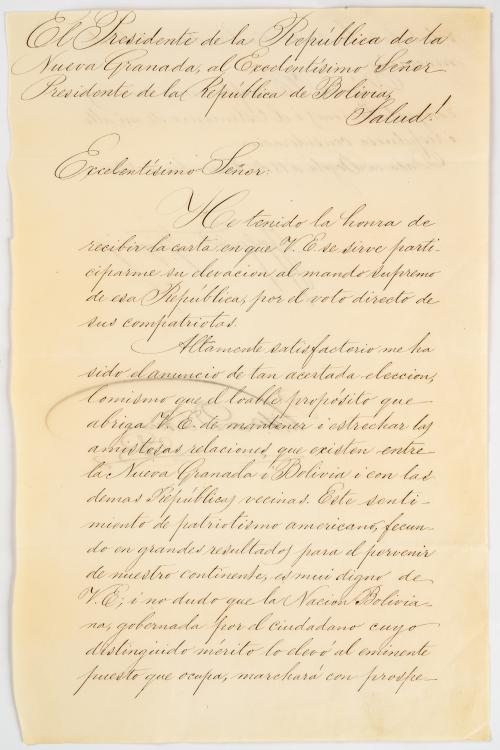 El Presidente de la República de la
Nueva Granada, al Excelentísimo Señor
Presidente de la República de Bolivia,
Salud!
Excelentísimo Señor:
He tenido la honra de
recibir la carta en que V. E. se sirve parti-
ciparme su elevacion al mando supremo
de esa República, por el voto directo de
sus compatriotas.
Altamente satisfactorio me ha
sido el anuncio de tan acertada eleccion,
lo mismo que el loable propósito que
abriga V. E. de mantener i estrechar las
amistosas relaciones que existen entre
la Nueva Granada i Bolivia i con las
demas Repúblicas vecinas. Este senti-
miento de patriotismo americano, fecun-
do en grandes resultados para el porvenir
de nuestro continente, es mui digno de
V. E.; i no dudo que la Nacion Bolivia-
na, gobernada por el ciudadano cuyo
distinguido mérito lo elevó al eminente
puesto que ocupa, marchará con prospe-